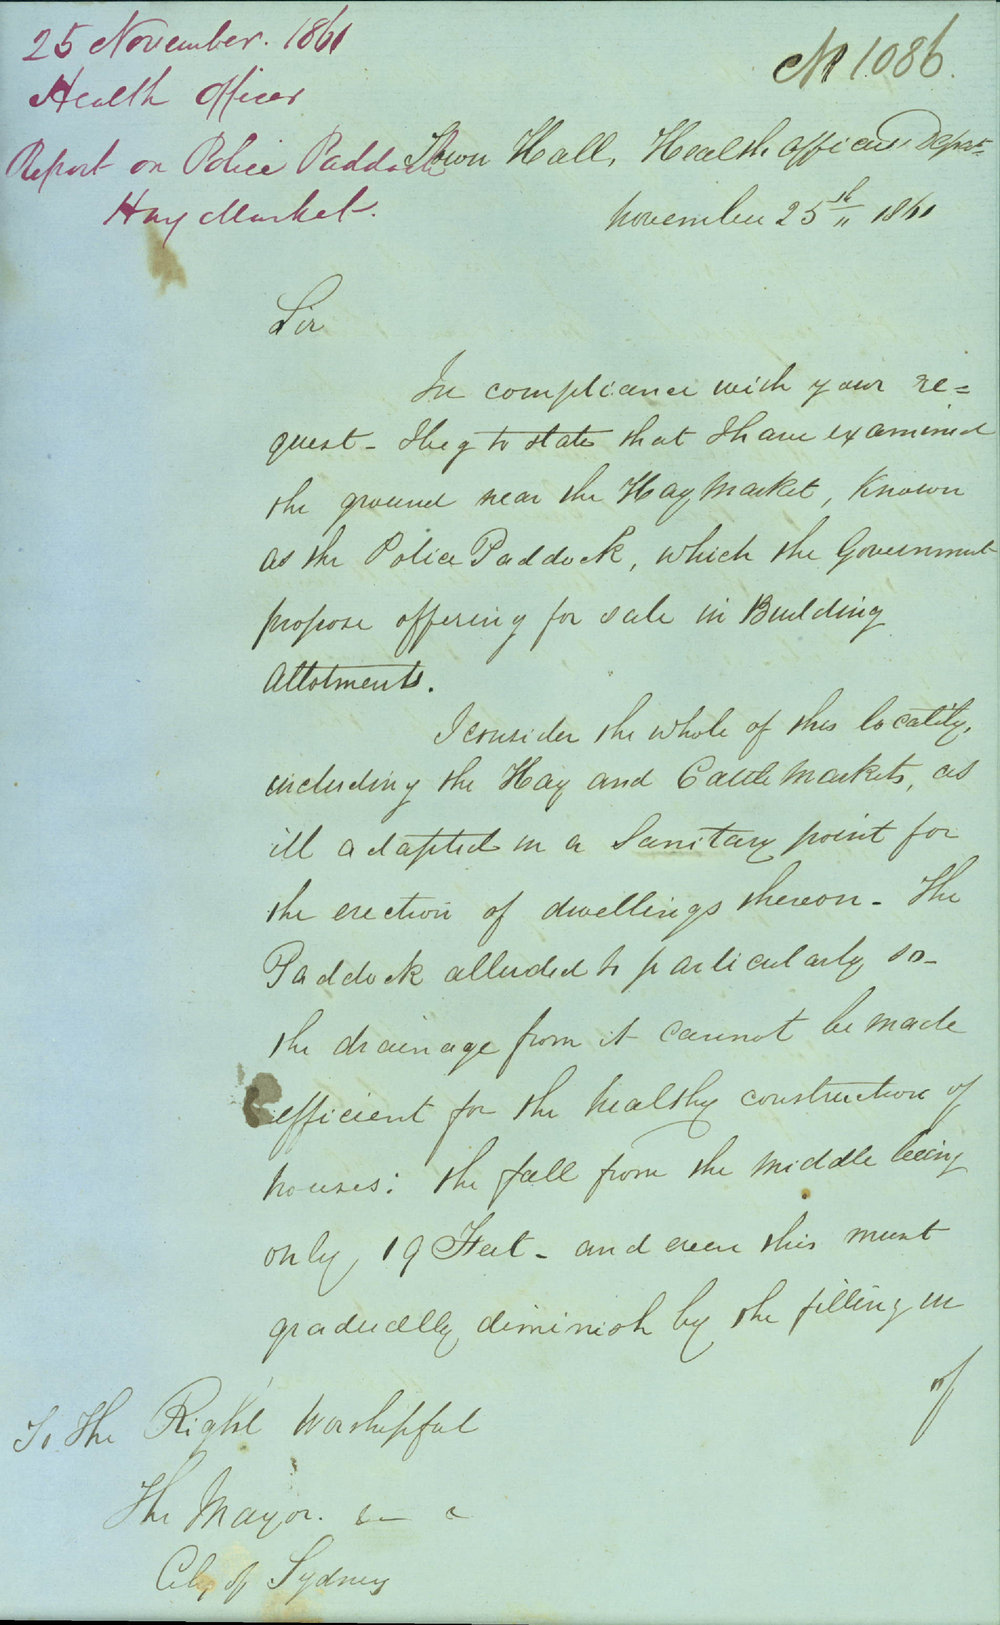 25 November. 1861
Health Officer
Report on Police Paddock
Hay Market.
No 1086.
Town Hall, Health Officers Depart
November 25th 1861
Sir
In compliance with your re=
quest - I beg to state that I have examined
the ground near the Hay Market, Known
as the Police Paddock, which the Government
propose offering for sale in Building
Allotments.
I consider the whole of this locality,
including the Hay and Cattle Markets, as
ill adapted in a Sanitary point for
the erection of dwellings thereon - The
Paddock alluded to particularly so -
the drainage from it cannot be made
efficient for the healthy construction of
houses: the fall from the middle being
only 19 Feet - and even this must
gradually diminish by the filling in
of
To The Right Worshipful
The Mayor. &c
City of Sydney